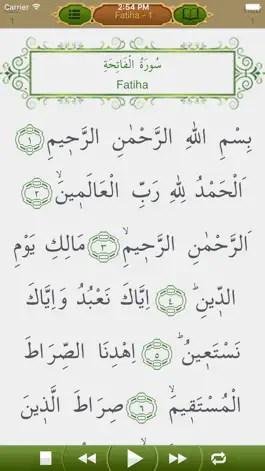 Carrier 2:54 PM
1 Fatiha - 1 1
سُورَةُ الْفَاتِحَةِ
Fatiha
بِسْمِ اللهِ الرَّحْمٰنِ الرَّح۪يمِ ﴿١﴾
اَلْحَمْدُ لِلّٰهِ رَبِّ الْعَالَم۪ينَۙ ﴿٢﴾
اَلرَّحْمٰنِ الرَّح۪يمِۙ ﴿٣﴾ مَالِكِ يَوْمِ
الدّ۪ينِۜ ﴿٤﴾ اِيَّاكَ نَعْبُدُ وَاِيَّاكَ
نَسْتَع۪ينُۜ ﴿٥﴾ اِهْدِنَا الصِّرَاطَ
الْمُسْتَق۪يمَۙ ﴿٦﴾ صِرَاطَ الَّذ۪ينَ